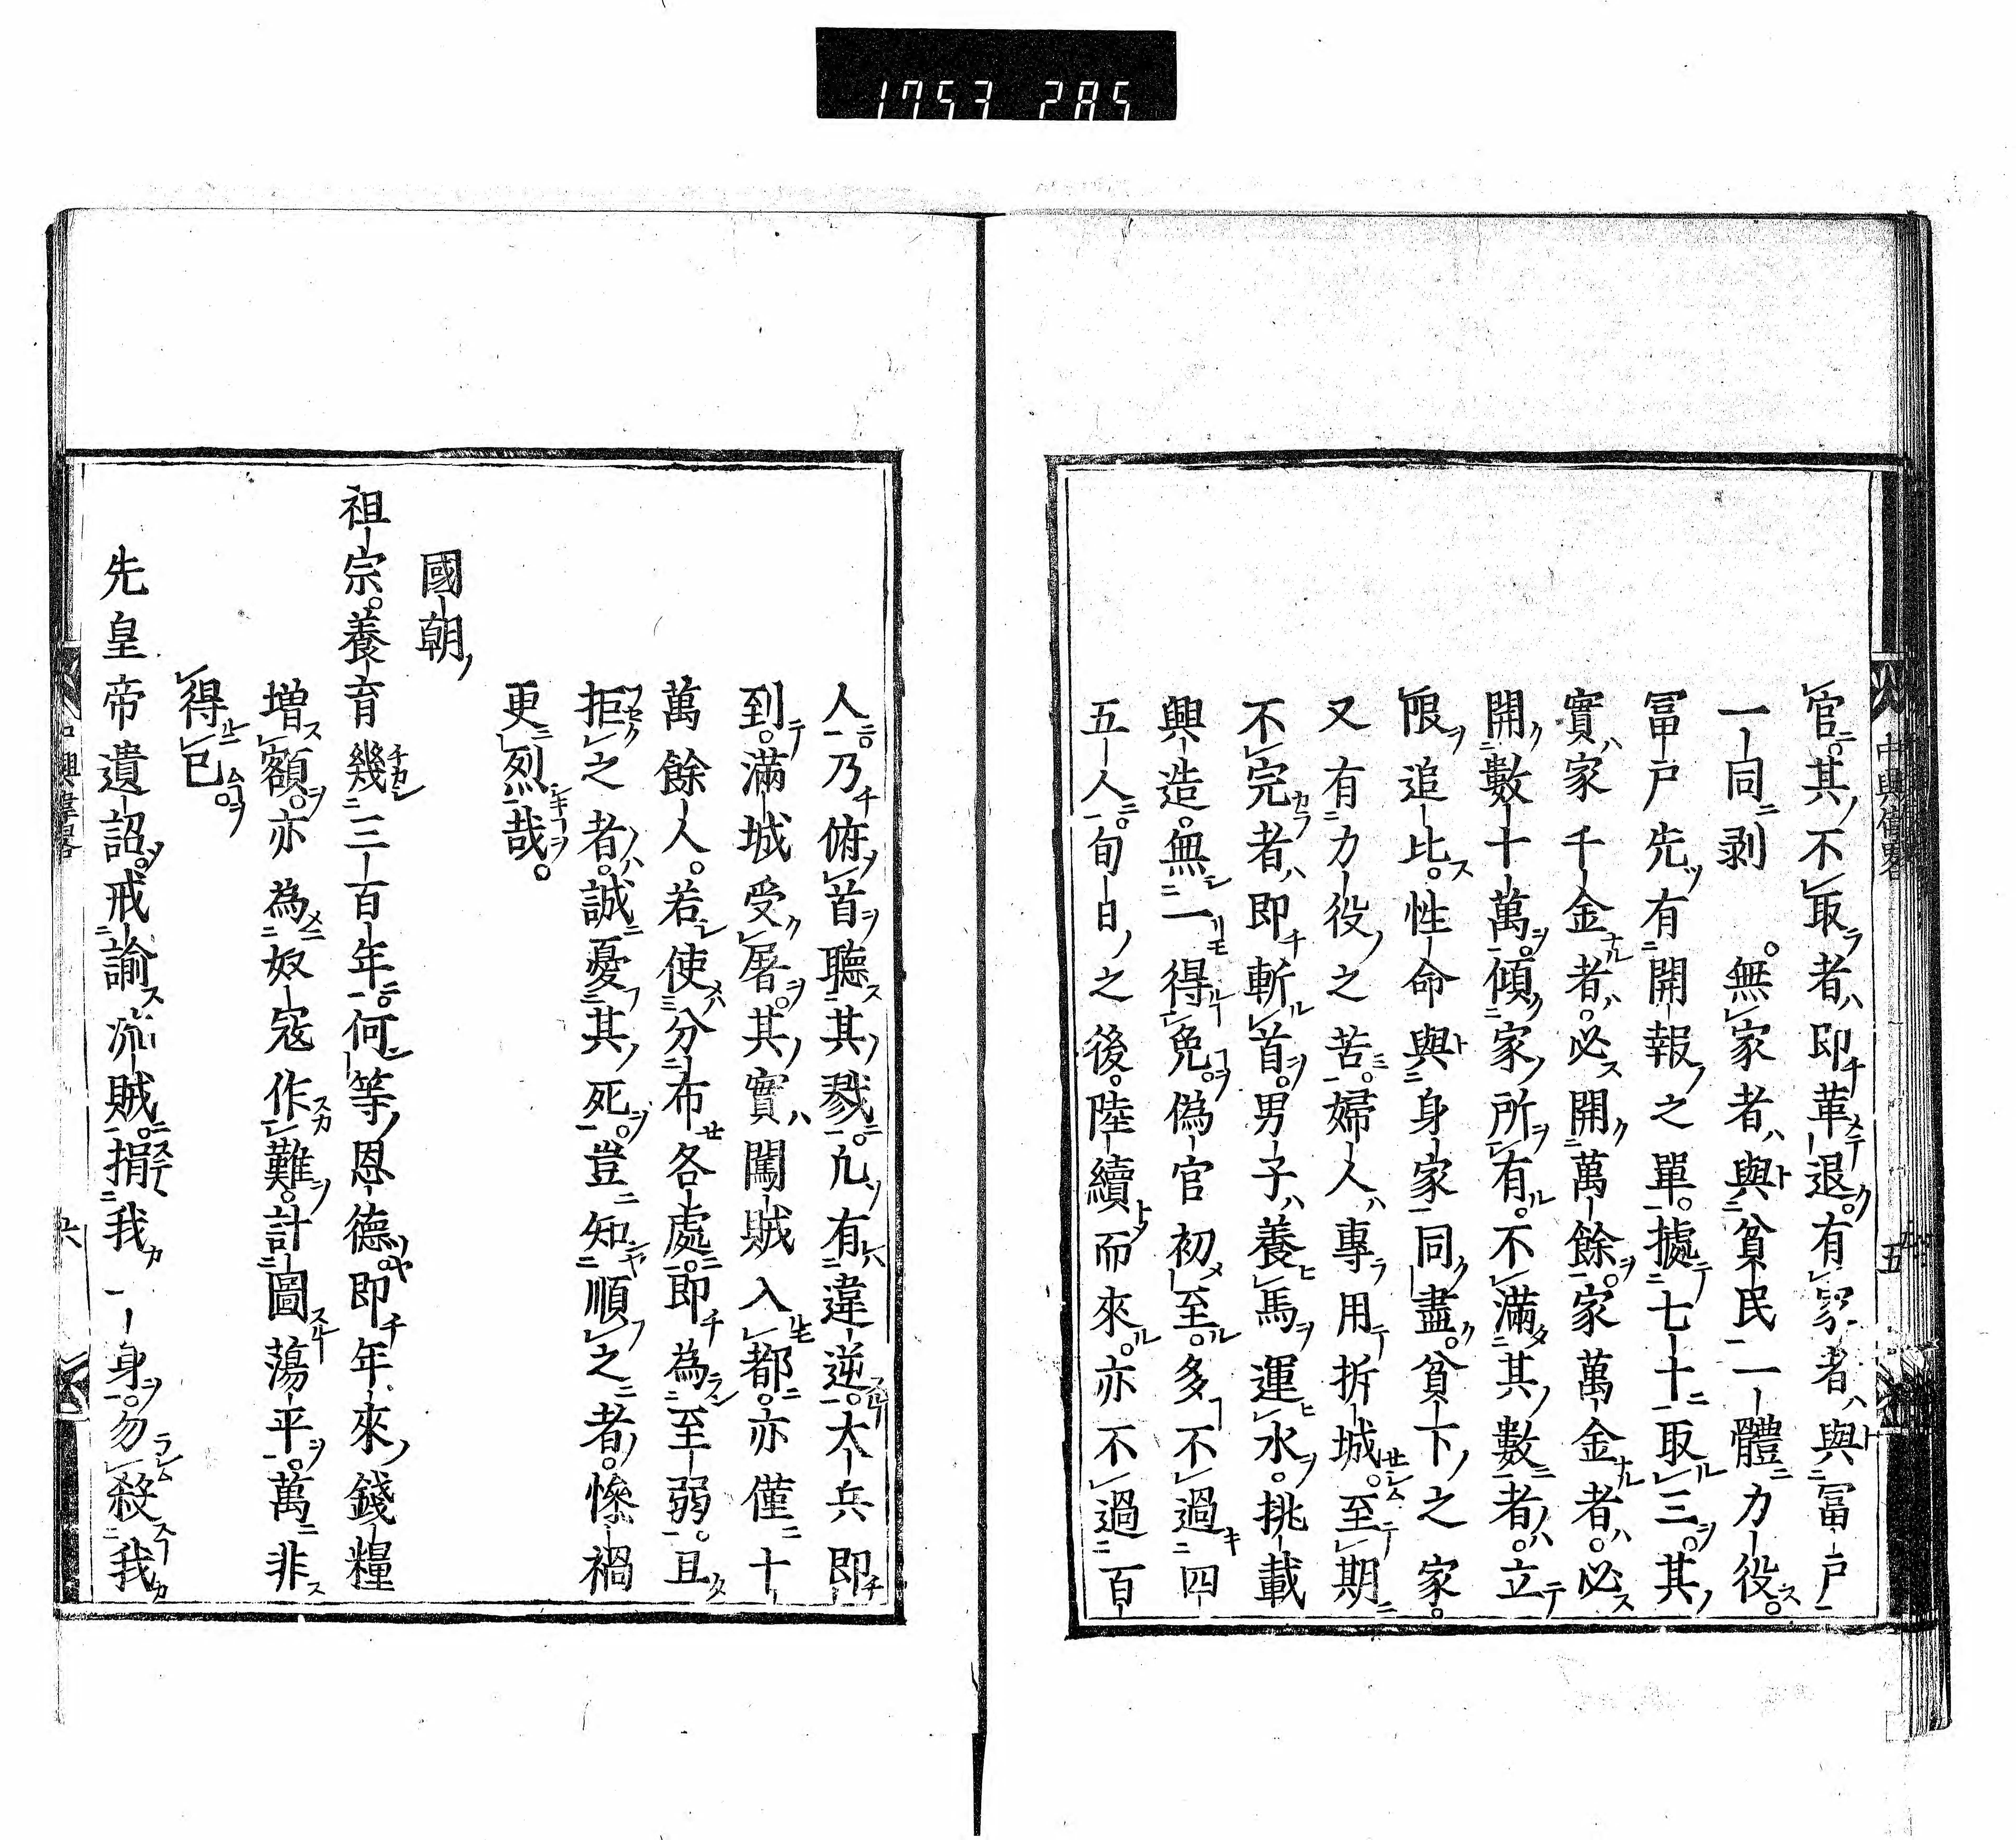 1753 285
官其不取者即革退有家者與冨戸
一同剥。無家者與貧民一體力役
冨戸先有開報之單據七十取三其
實家千金者必開萬餘家萬金者必
開數十萬傾家所有不滿其數者立
限追比性命與身家同盡貧下之家
又有力役之苦婦人專用拆城至期
不完者即斬首男子養馬運水挑載
興造無一得免偽官初至多不過四
五人旬日之後陸續而來亦不過百
中興偉略
五
人乃俯首聽其戮凢有違逆大兵即
到滿城受屠其實闖賊入都亦僅十
萬餘人若使分布各處即為至弱且
拒之者誠憂其死豈知順之者慘禍
更烈哉
國朝
祖宗養育幾三百年何等恩德即年來錢糧
増額亦為奴寇作難計圖蕩平萬非
得已
先皇帝遺詔戒諭流賊捐我一身勿殺我
中興偉略
六